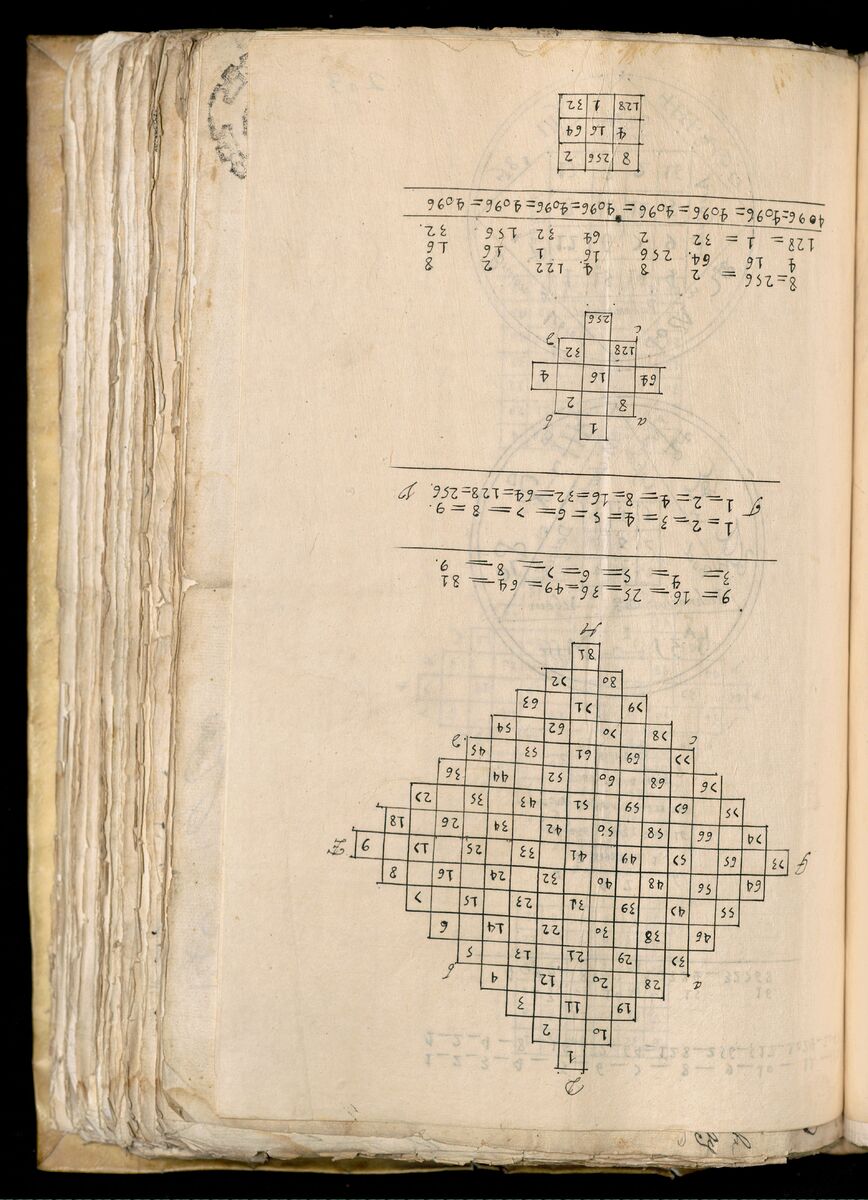 D
1
10 2
19 11 3
28 20 12 4
a 37 29 21 13 5 b
46 38 30 22 14 6
55 47 39 31 23 15 7
64 56 48 40 32 24 16 8
73 65 57 49 41 33 25 17 9
74 66 58 50 42 34 26 18
75 67 59 51 43 35 27
76 68 60 52 44 36
c 77 69 61 53 45 d
78 70 62 54
79 71 63
80 72
81
H
9= 16= 25= 36=49= 64= 81
3= 4= 5= 6= 7= 8= 9.
1=2=3=4=5=6=7=8=9.
1=2=4=8=16=32=64=128=256.
1
a 8 2 b
64 16 4
c 128 32 d
256
8=256 = 2 8 4 122 2 8
4 16 64. 256 16. 1 16 16
128= 1 = 32 2 64 32 156. 32.
4096=4096= 4096= 4096= 4096=4096=4096= 4096
8 256 2
4 16 64
128 1 32